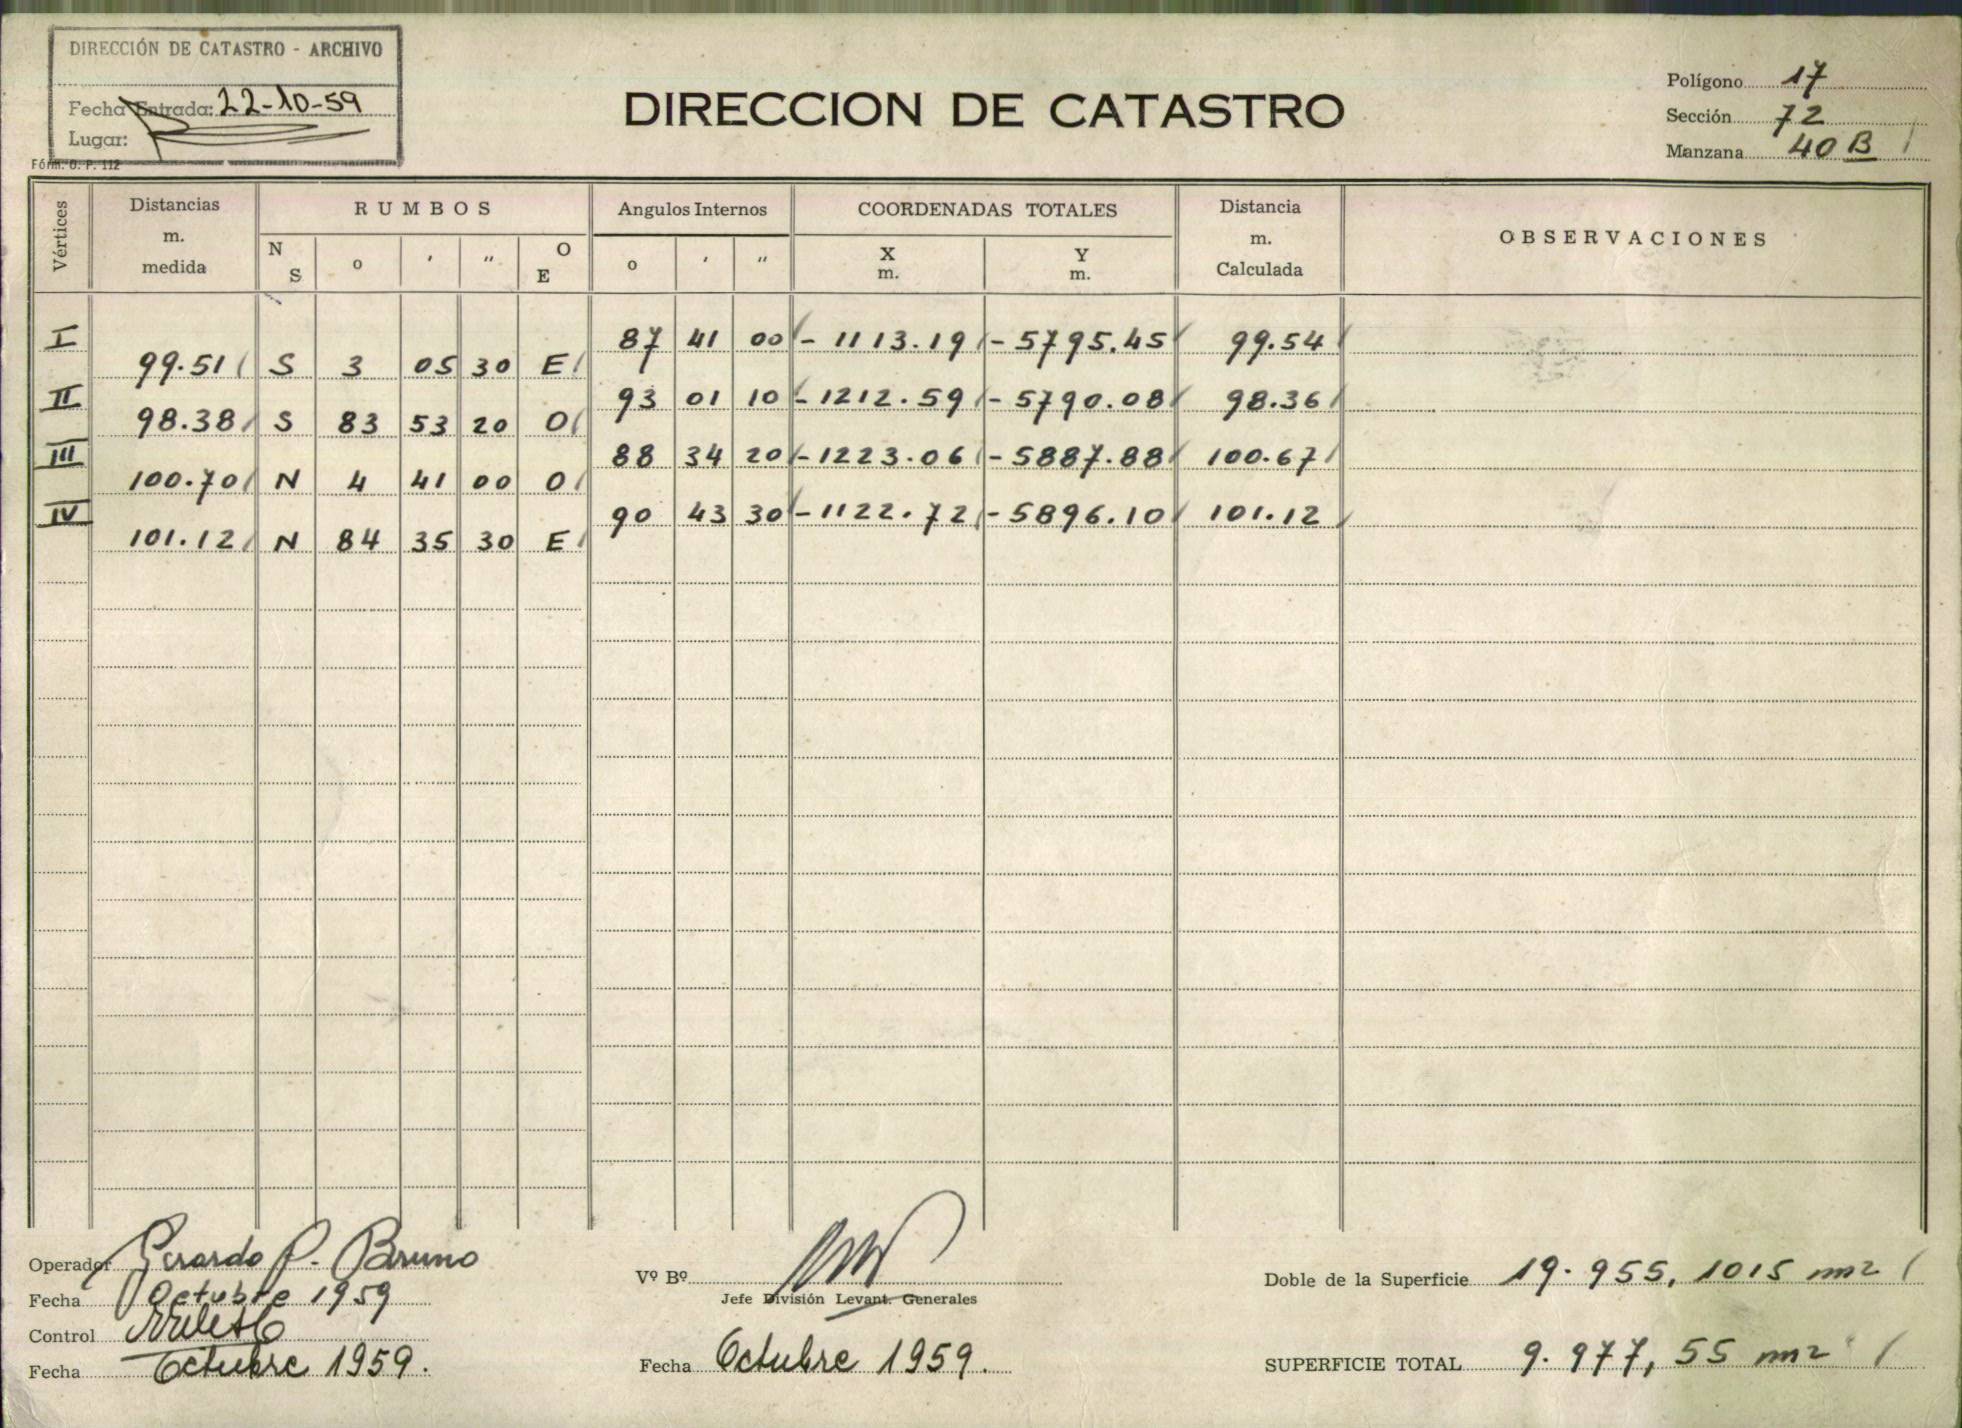 DIRECCIÓN DE CATASTRO - ARCHIVO
Fecha Entrada: 22-10-59
Lugar:
Fórm. O. P. 112
DIRECCION DE CATASTRO
Polígono 17
Sección 72
Manzana 40 B
Vértices
Distancias m. medida
RUMBOS
N S o ' " O E
Angulos Internos
o ' "
COORDENADAS TOTALES
X m. Y m.
Distancia m. Calculada
OBSERVACIONES
I 87 41 00 - 1113.19 - 5795.45 99.54
99.51 S 3 05 30 E
II 93 01 10 - 1212.59 - 5790.08 98.36
98.38 S 83 53 20 O
III 88 34 20 - 1223.06 - 5887.88 100.67
100.70 N 4 41 00 O
IV 90 43 30 - 1122.72 - 5896.10 101.12
101.12 N 84 35 30 E
Operador Gerardo P. Bruno
Fecha Octubre 1959
Control
Fecha Octubre 1959.
Vº Bº
Jefe División Levant. Generales
Fecha Octubre 1959.
Doble de la Superficie 19.955,1015 m2
SUPERFICIE TOTAL 9.977,55 m2